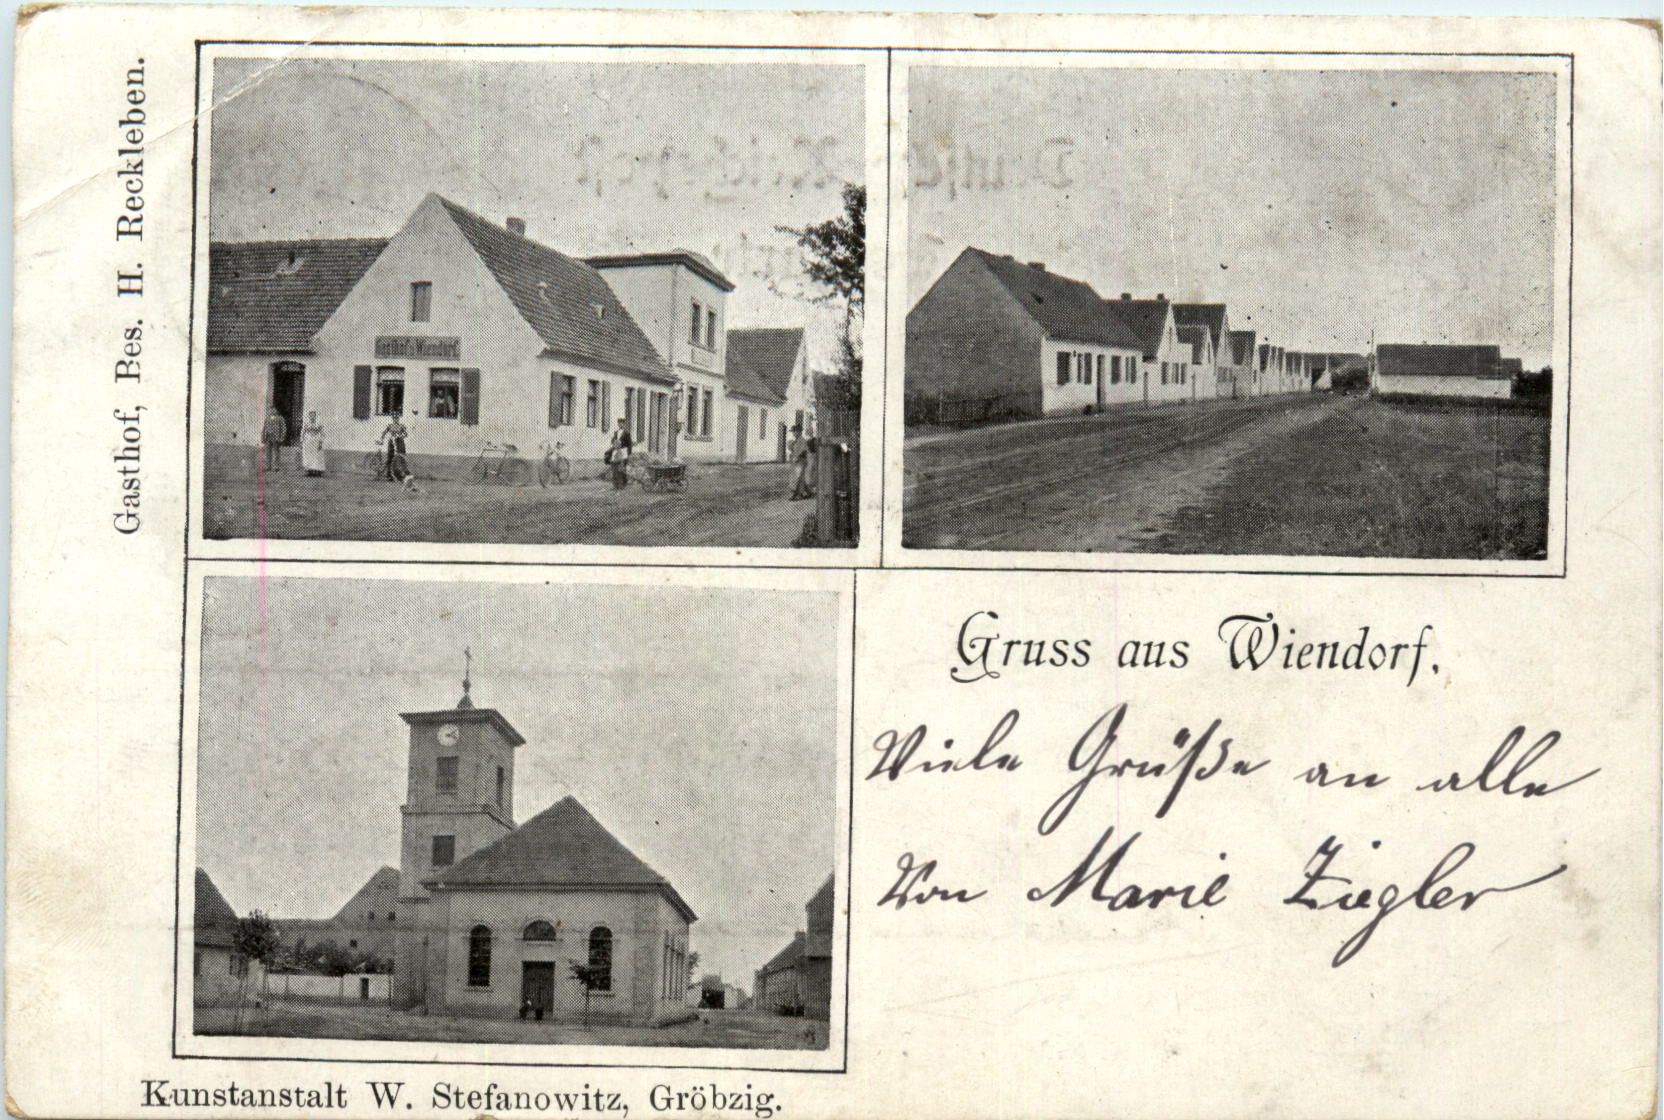 Gasthof, Bes. H. Reckleben.
Gasthof z. Wiendorf.
Gruss aus Wiendorf.
Viele Grüße an alle
Von Marie Ziegler
Kunstanstalt W. Stefanowitz, Gröbzig.